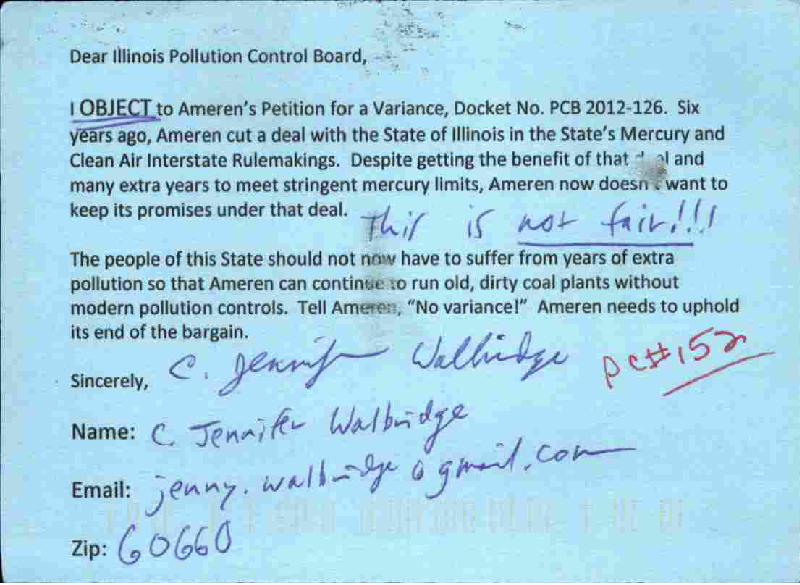 Dear Illinois Pollution Control Board,
I OBJECT to Ameren's Petition for a Variance, Docket No. PCB 2012-126. Six
years ago, Ameren cut a deal with the State of Illinois in the State's Mercury and
Clean Air Interstate Rulemakings. Despite getting the benefit of that deal and
many extra years to meet stringent mercury limits, Ameren now doesn't want to
keep its promises under that deal.
This is not fair!!!
The people of this State should not now have to suffer from years of extra
pollution so that Ameren can continue to run old, dirty coal plants without
modern pollution controls. Tell Ameren, "No variance!" Ameren needs to uphold
its end of the bargain.
Sincerely, C. Jennifer Walbridge
PC#152
Name: C. Jennifer Walbridge
Email: jenny.walbridge@gmail.com
Zip: 60660